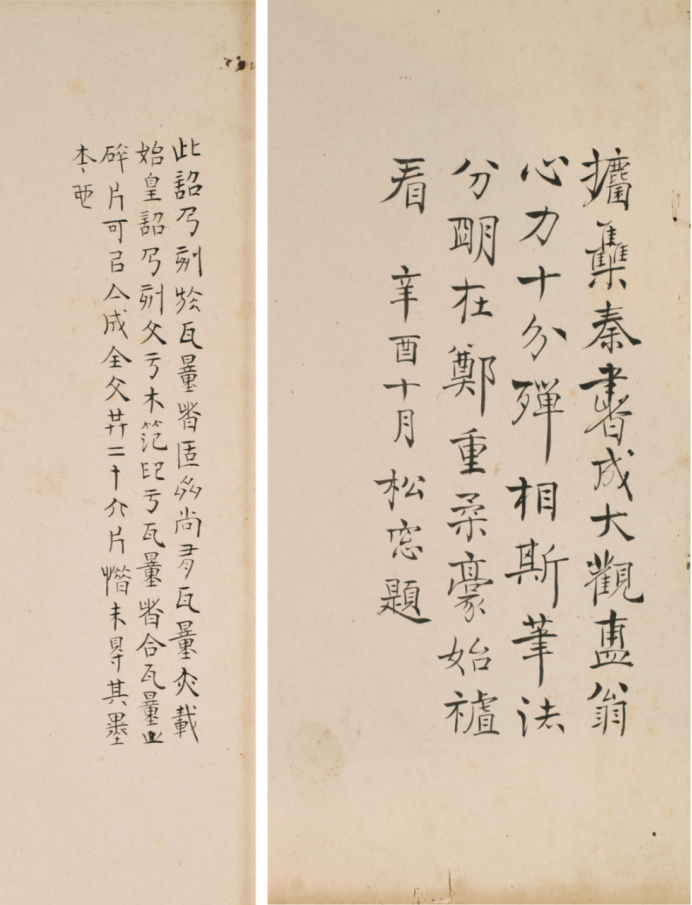 集秦書成大觀盙翁
心力十分殫相斯筆法
分明在鄭重柔豪始
看 辛酉十月松窗題
此詔乃刻於瓦量者多尚有瓦量亦載
始皇詔乃刻文亏木笵印亏瓦量者合瓦量㞢
碎片可㠯亼成全文二十介片惜未㝵其墨
本